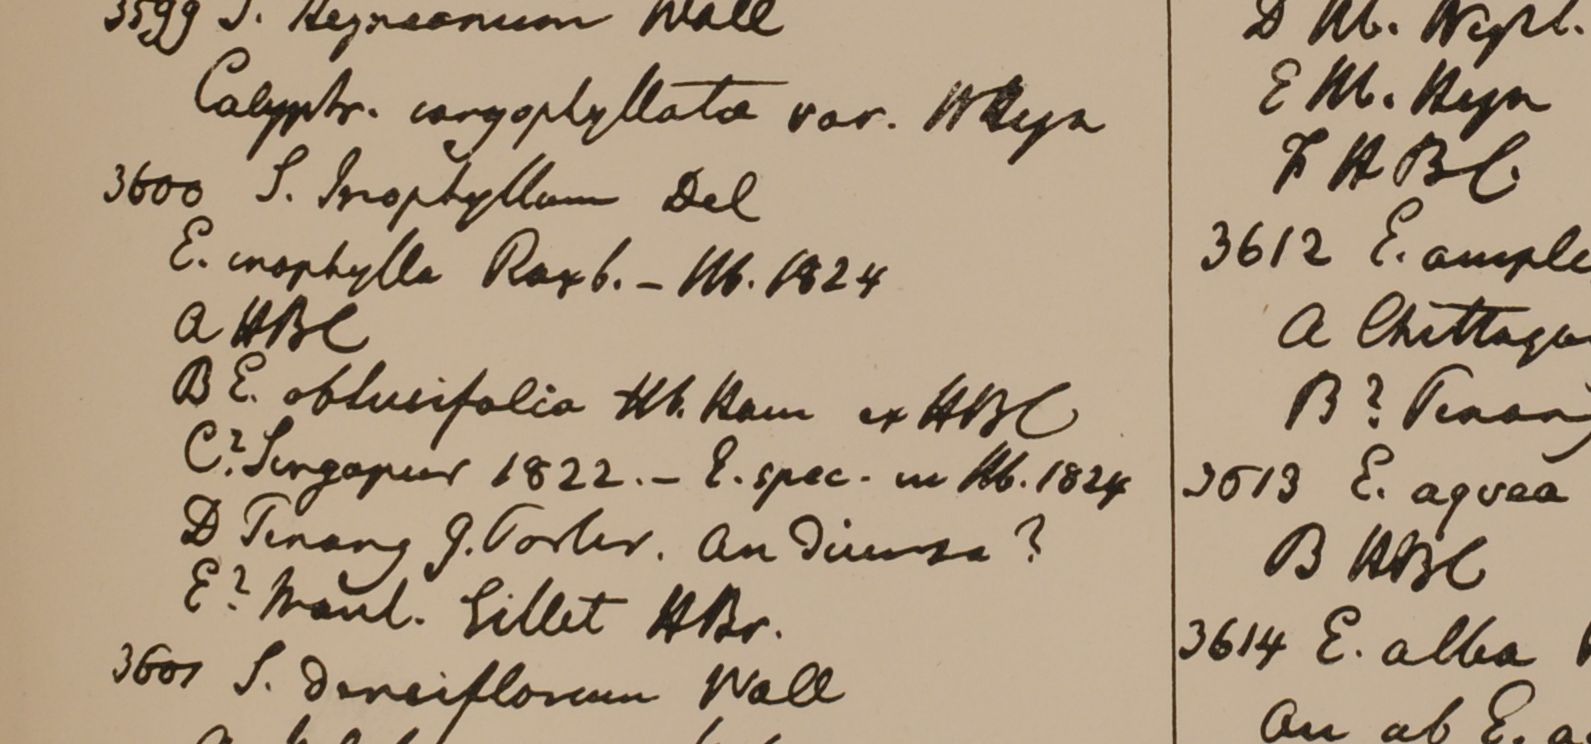 3599 S. Heyneanum Wall
Calyptr. caryophyllata var. HHeyn
3600 S. Inophyllum Del
E. inophylla Roxb. – Hb. 1824
A HBC
B E. obtusifolia Hb. Ham ex HBC
C? Singapur 1822. – E. spec. in Hb. 1824
D Penang G. Porter. an diversa?
E? Maul. Gillet HBr.
3601 S. densiflorum Wall
D Hb. Wight.
E Hb. Heyn
F HBC.
3612 E. ample
A Chittago
B? Penang
3613 E. aquea
B HBC
3614 E. alba
an ab E. a